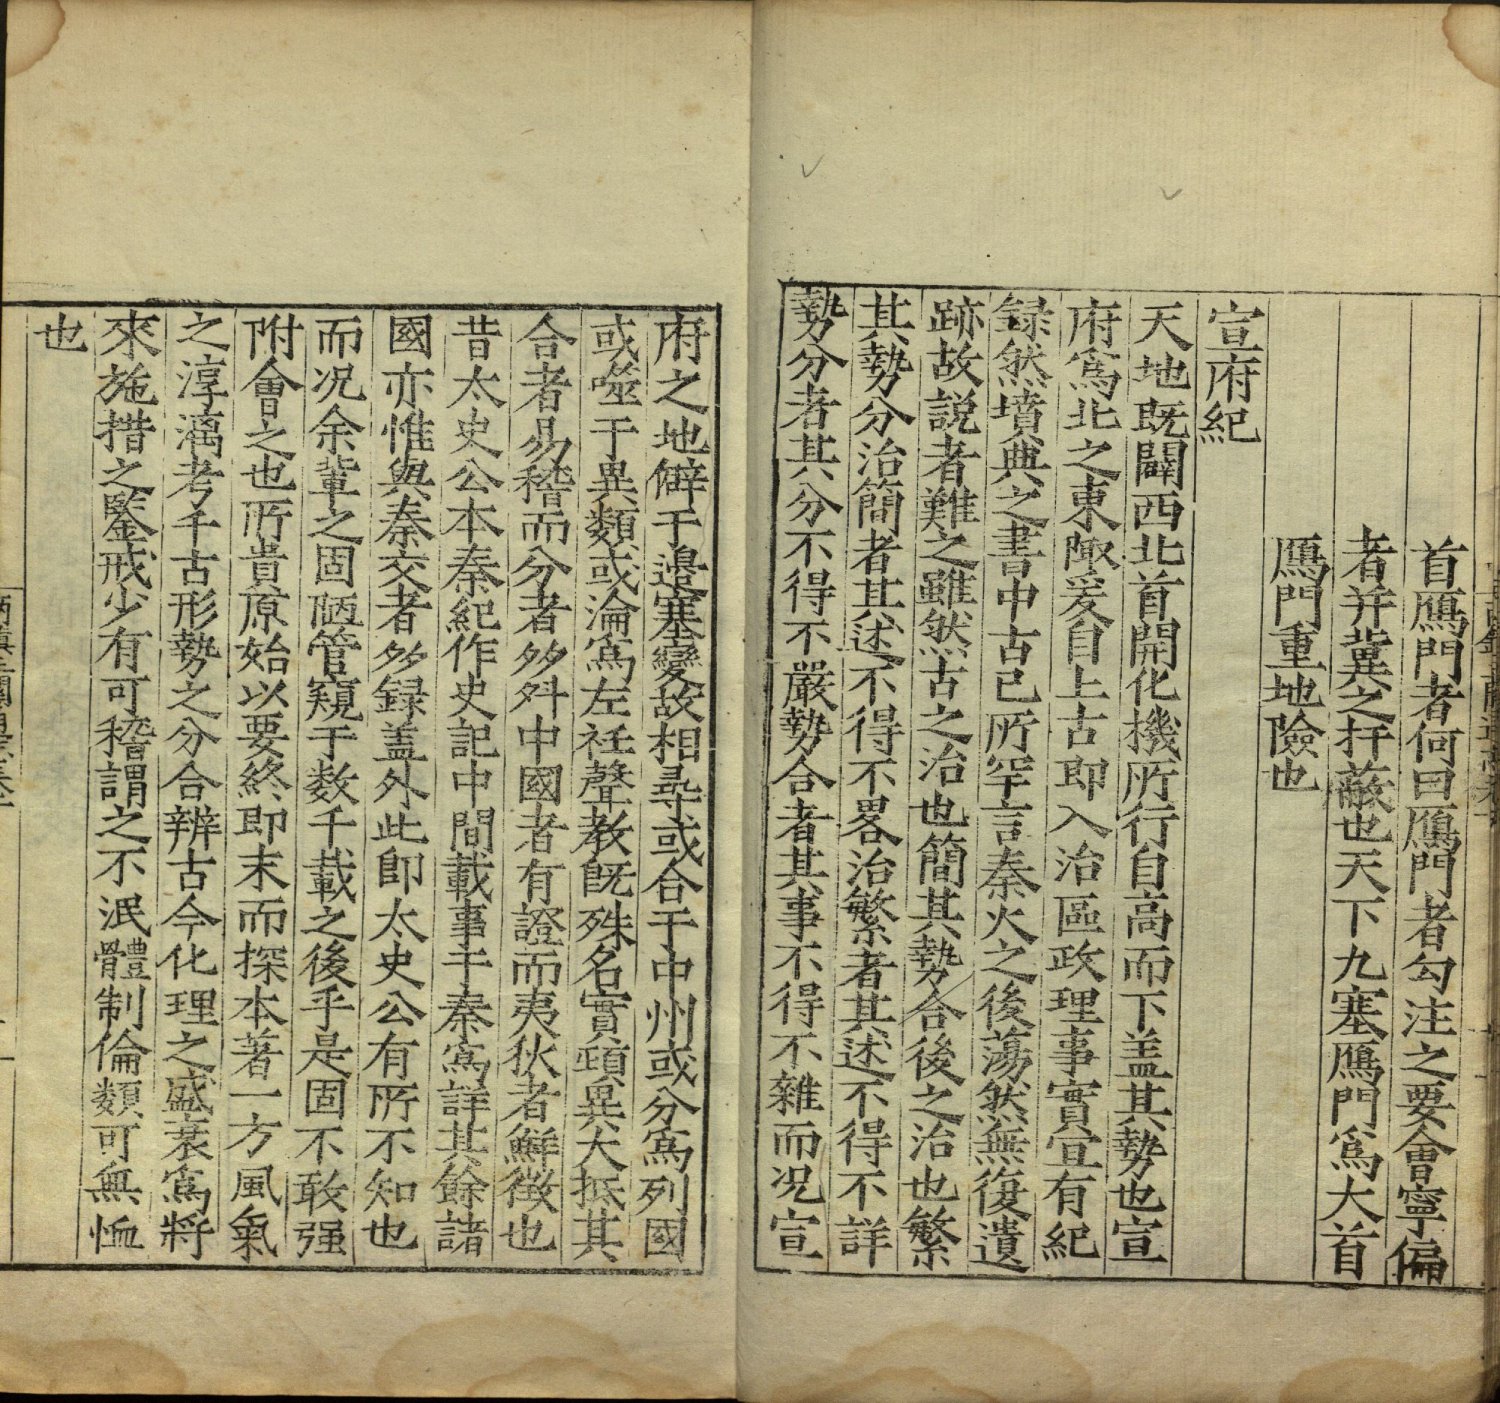 首鴈門者何曰鴈門者勾注之要會寧偏
者并冀之扞蔽也天下九塞鴈門爲大首
鴈門重地險也
宣府紀
天地既闢西北首開化機所行自高而下盖其勢也宣
府爲北之東陬爰自上古即入治區政理事實宜有紀
録然墳典之書中古已所罕言秦火之後蕩然無復遺
跡故説者難之雖然古之治也簡其勢合後之治也繁
其勢分治簡者其述不得不畧治繁者其述不得不詳
勢分者其分不得不嚴勢合者其事不得不雜而况宣
府之地僻于邉塞變故相尋或合于中州或分爲列國
或噬于異類或淪爲左衽聲教旣殊名實頓異大抵其
合者易稽而分者多舛中國者有證而夷狄者鮮徵也
昔太史公本秦紀作史記中間載事于秦爲詳其餘諸
國亦惟與秦交者多録盖外此卽太史公有所不知也
而况余軰之固陋管窺于数千載之後乎是固不敢强
附會之也所貴原始以要終即末而探本著一方風氣
之淳漓考千古形勢之分合辨古今化理之盛衰爲將
來施措之鑒戒少有可稽謂之不泯體制倫類可無恤
也